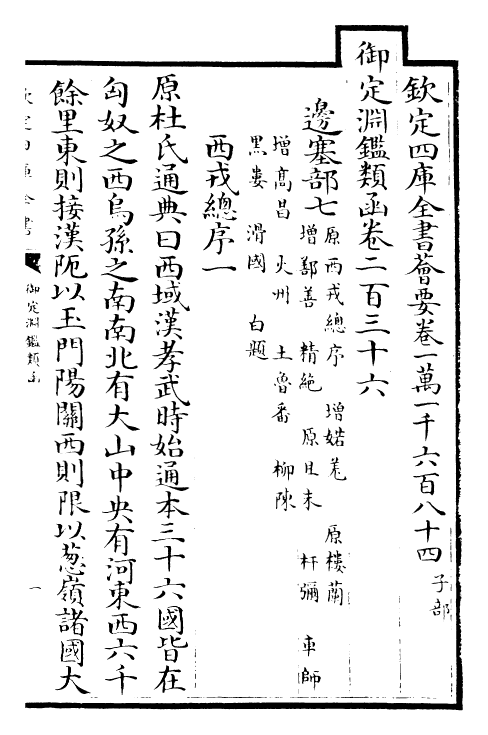 欽定四庫全書薈要卷一萬一千六百八十四 子部
御定淵鑑類函卷二百三十六
邊塞部七 原西戎總序 增婼羌 原樓蘭
增鄯善 精絶 原且末 杆彌 車師
增高昌 火州 土魯番 柳陳
黑婁 滑國 白題
西戎總序一
原杜氏通典曰西域漢孝武時始通本三十六國皆在
匈奴之西烏孫之南南北有大山中央有河東西六千
餘里東則接漢阨以玉門陽關西則限以葱嶺諸國大
欽定四庫全書
御定淵鑑類函
一